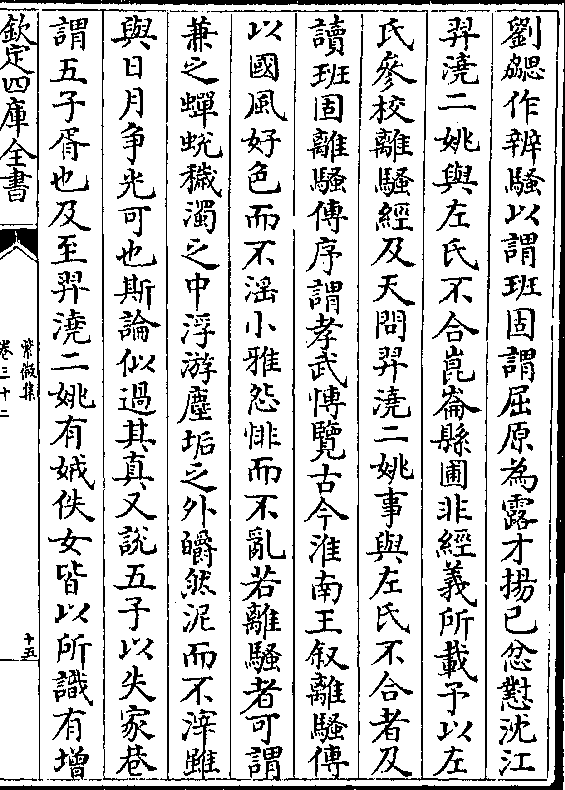 劉勰作辨騷以謂班固謂屈原為露才揚己忿懟沈江
羿澆二姚與左氏不合崑崙縣圃非經義所載予以左
氏參校離騷經及天問羿澆二姚事與左氏不合者及
讀班固離騷傳序謂孝武愽覽古今淮南王叙離騷傳
以國風好色而不滛小雅怨悱而不亂若離騷者可謂
兼之蟬蛻穢濁之中浮游塵垢之外皭然泥而不滓雖
與日月争光可也斯論似過其真又說五子以失家巷
謂五子胥也及至羿澆二姚有娀佚女皆以所識有增
欽定四庫全書
紫微集
卷三十二
十五